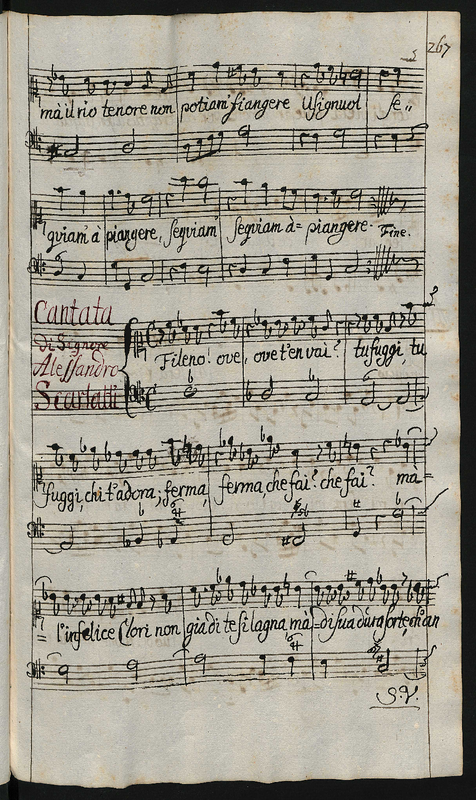 267
mà il rio tenore non potiam' piangere Usignuol se,,
gviam' à piangere, segviam' segviam à= piangere. Fine.
Cantata
di Signore
Alessandro
Scarlatti
Fileno! ove, ove t'en vai? tu fuggi, tu
fuggi, chi t'adora, ferma, ferma, che fai? che fai? mà=
= l'infelice Clori non già di te si lagna, mà=di sua dura sorte, ch'an
S.V.